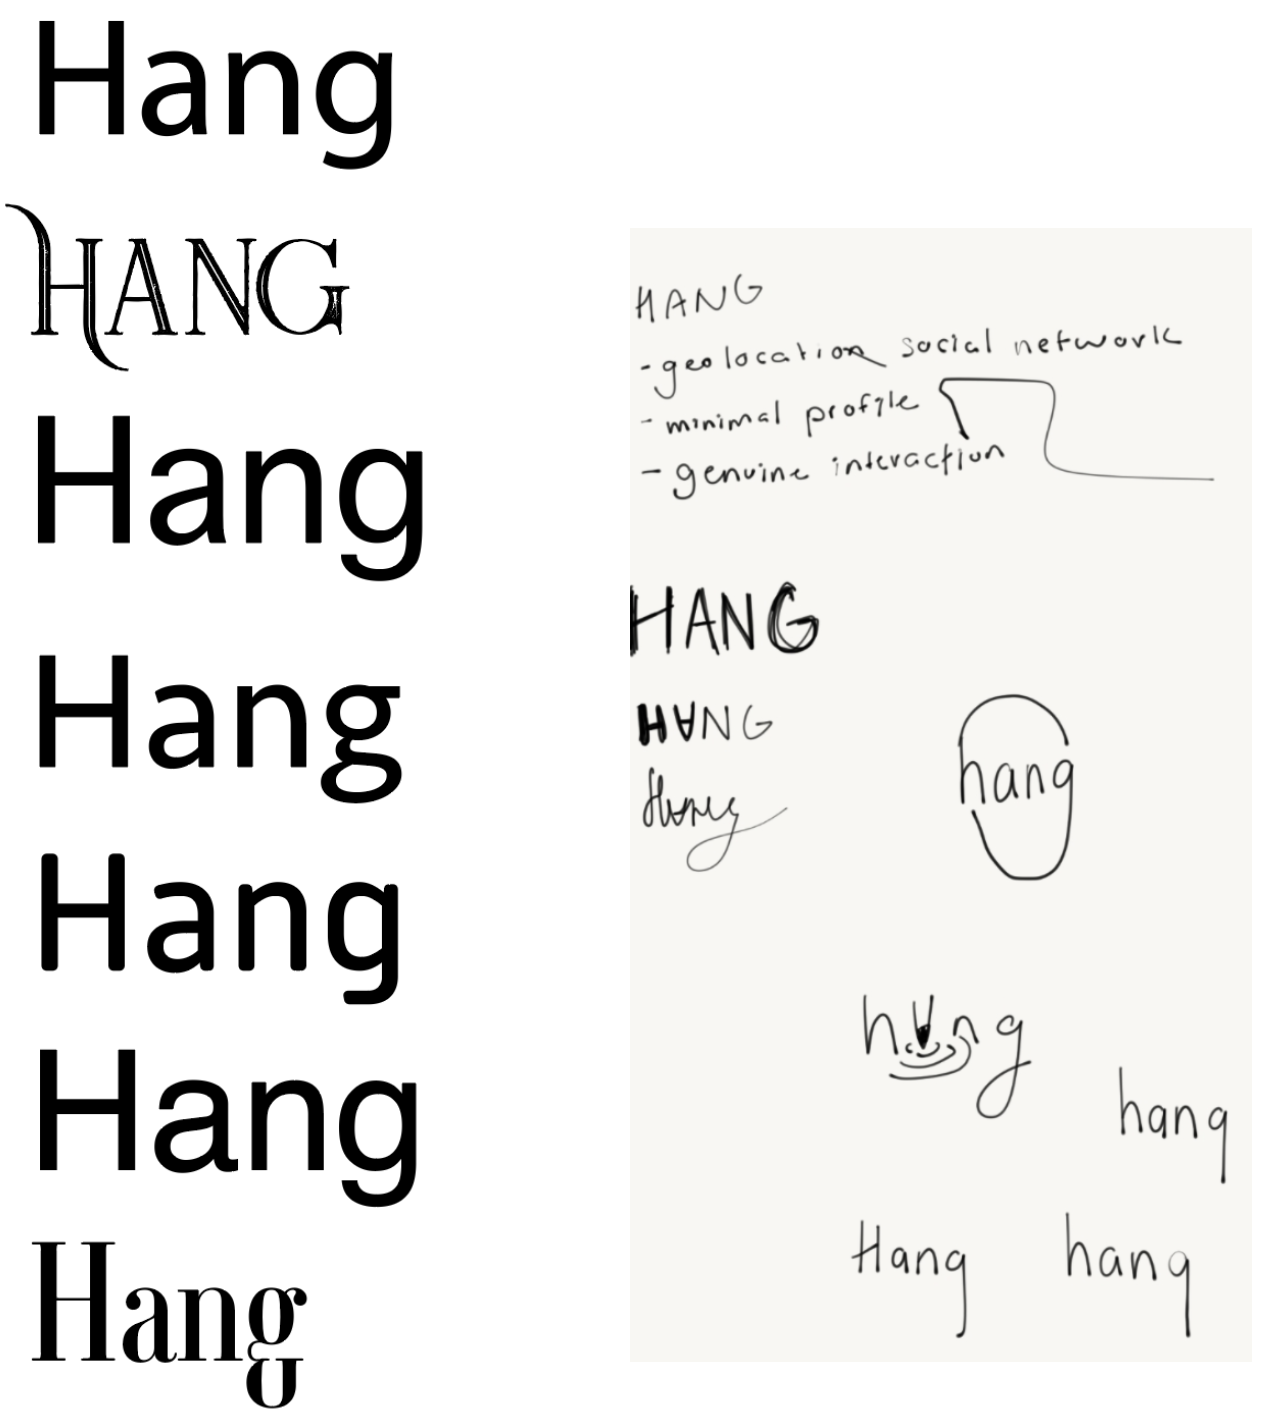 Hang
HANG
Hang
Hang
Hang
Hang
Hang
HANG
-geolocation social network
- minimal profile
- genuine interaction
HANG
HANG
Hang
hang
hang
hang
Hang
hang